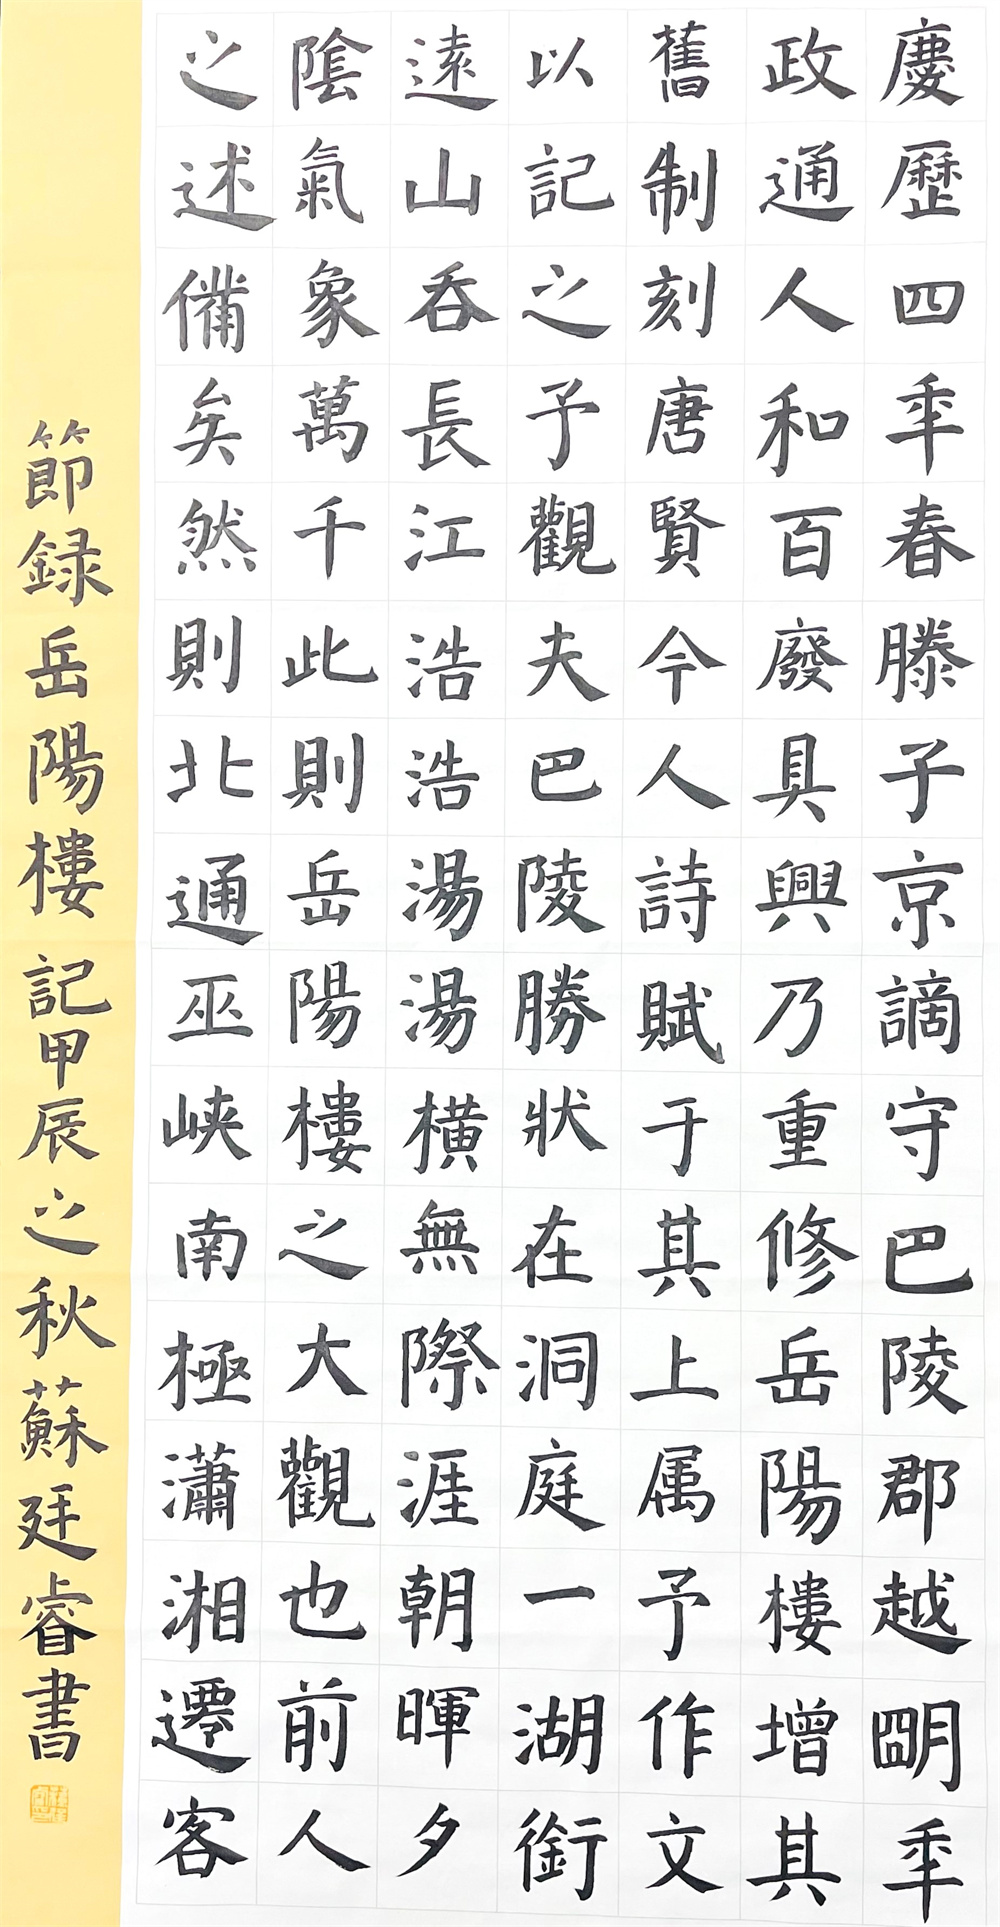 慶歷四年春滕子京謫守巴陵郡越明年
政通人和百廢具興乃重修岳陽樓增其
舊制刻唐賢今人詩賦于其上属予作文
以記之予觀夫巴陵勝狀在洞庭一湖銜
遠山吞長江浩浩湯湯橫無際涯朝暉夕
陰氣象萬千此則岳陽樓之大觀也前人
之述備矣然則北通巫峽南極瀟湘遷客
節録岳陽樓記甲辰之秋蘇廷睿書